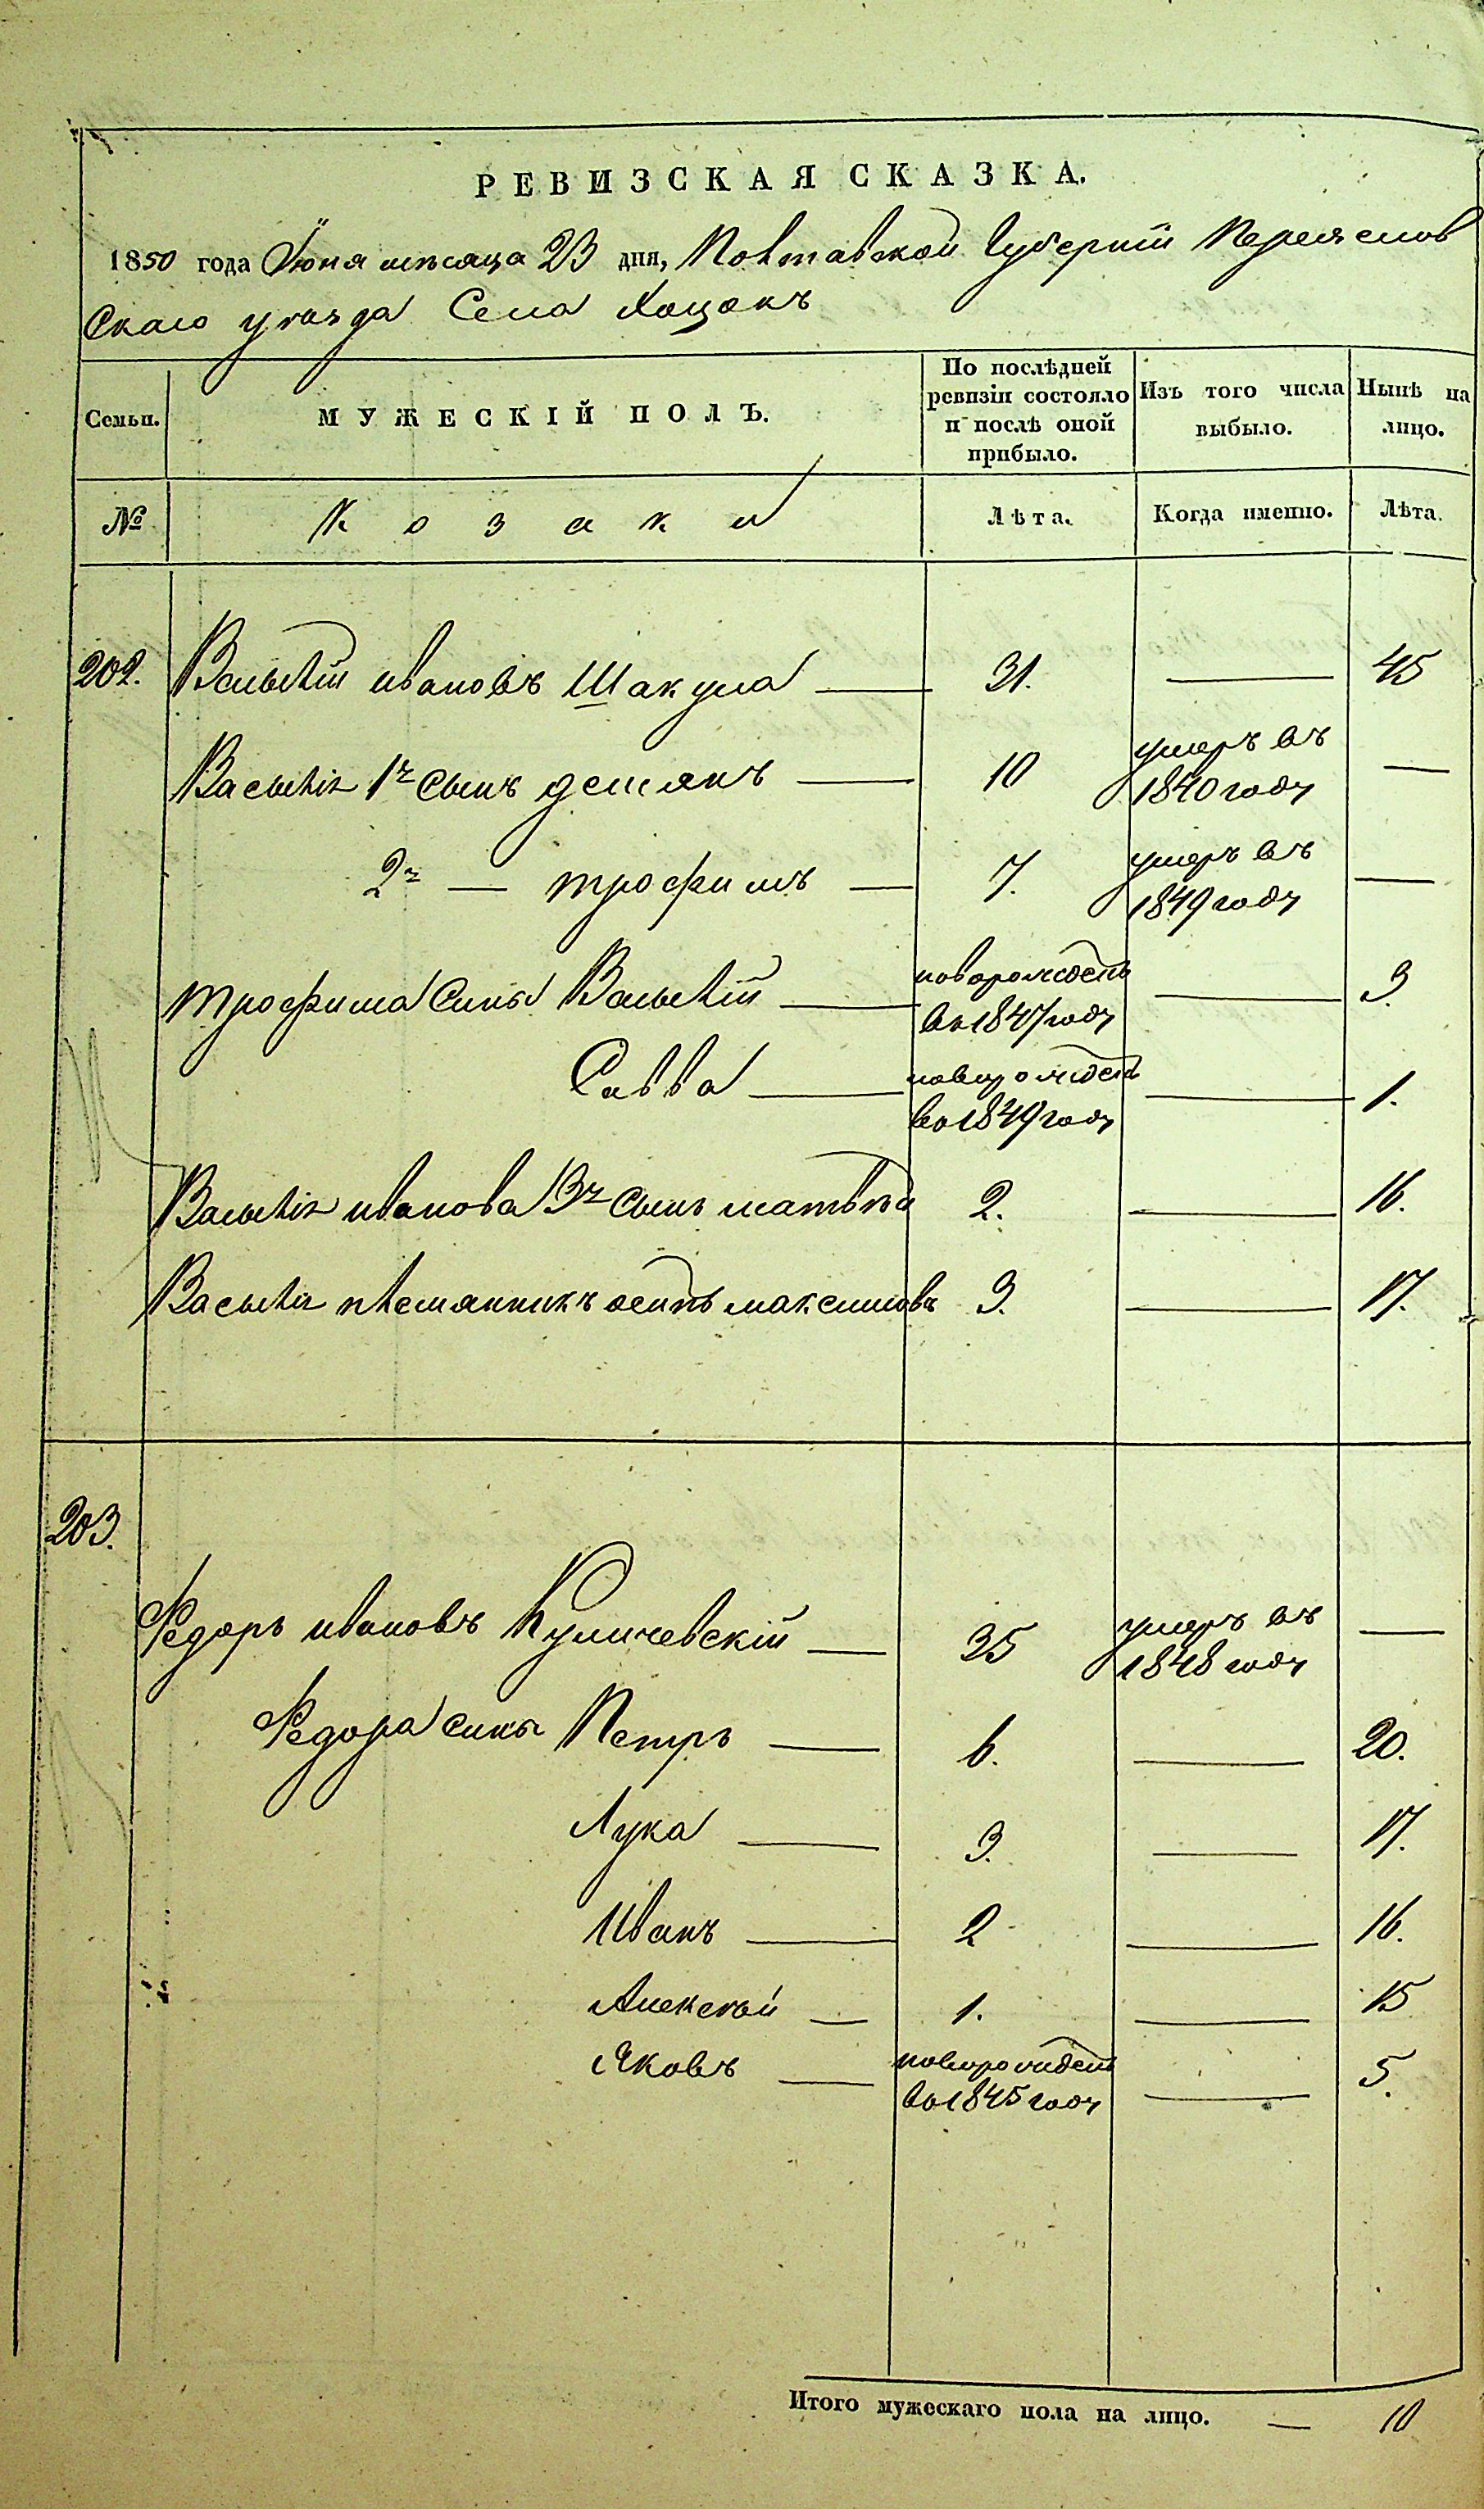 РЕВИЗСКАЯ СКАЗКА.
1850 года Июня месяца 23 дня, Полтавской Губернии Переяслов
Скаго уезда Села Хоцокъ
Семьи.
МУЖЕСКІЙ ПОЛЪ.
По послѣдней ревизіи состояло и послѣ оной прибыло.
Изъ того числа выбыло.
Нынѣ на лицо.
№
Козаки
Лѣта.
Когда именно.
Лѣта.
202. Василій ивановъ Шакула — 31. — 45
Василія 1й сынъ демянъ — 10 умеръ въ 1840 году —
2й — трофимъ — 7. умеръ въ 1849 году —
трофима Сины Василій — новорожденъ во 1847 году — 3.
Савва — новорожденъ во 1849 году — 1.
Василія иванова 3й Сынъ матвѣй 2. — 16.
Василія племянникъ осипъ максимовъ 3. — 17.
203.
Федоръ ивановъ Куличевскій — 35 умеръ въ 1848 году —
Федора сины Петръ — 6. — 20.
Лука — 3. — 17.
Иванъ — 2 — 16.
Алексѣй — 1. — 15
Яковъ — новорожденъ во 1845 году — 5.
Итого мужескаго пола на лицо. — 10